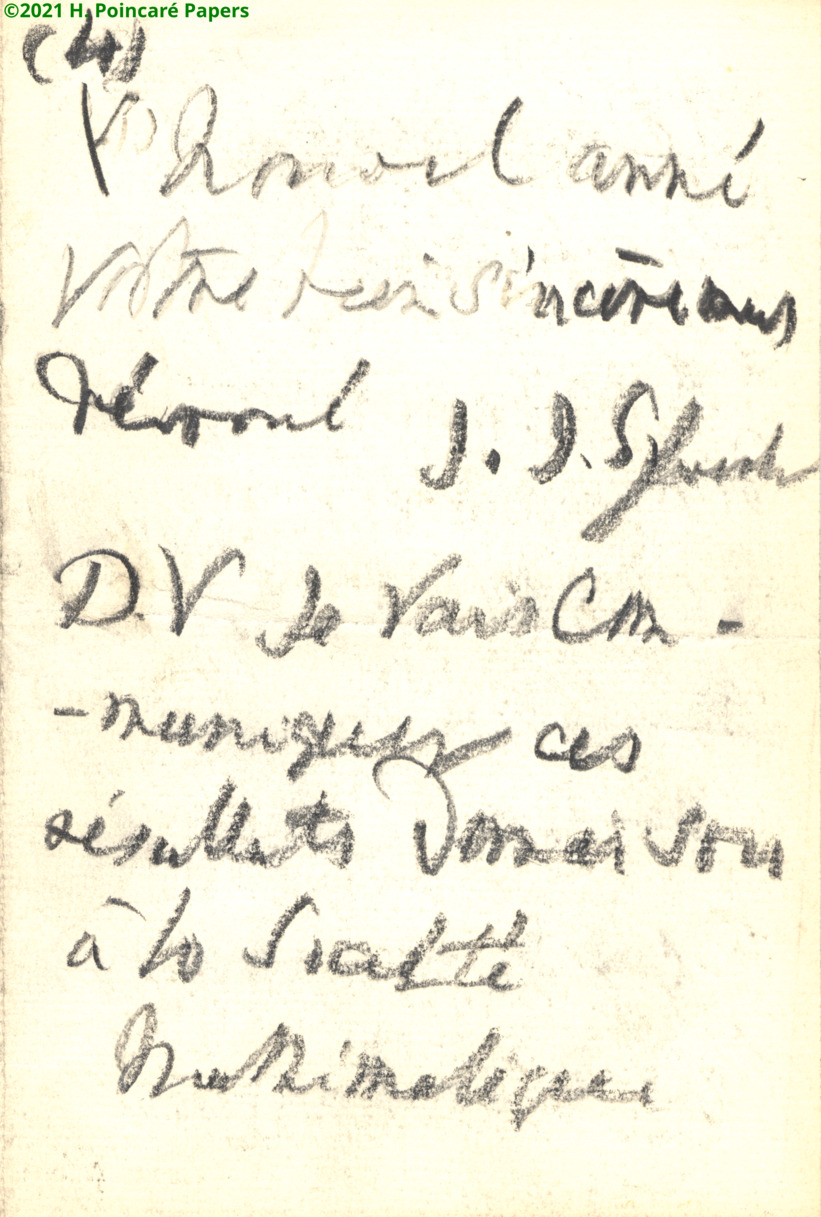 ©2021 H. Poincaré Papers
(4)
Nouvel anné
Votre bien sincèrement
dévoué J. J. Sylvester
D.V Je vais Com-
-muniquer ces
résultats demain soir
à la Société
Mathématique